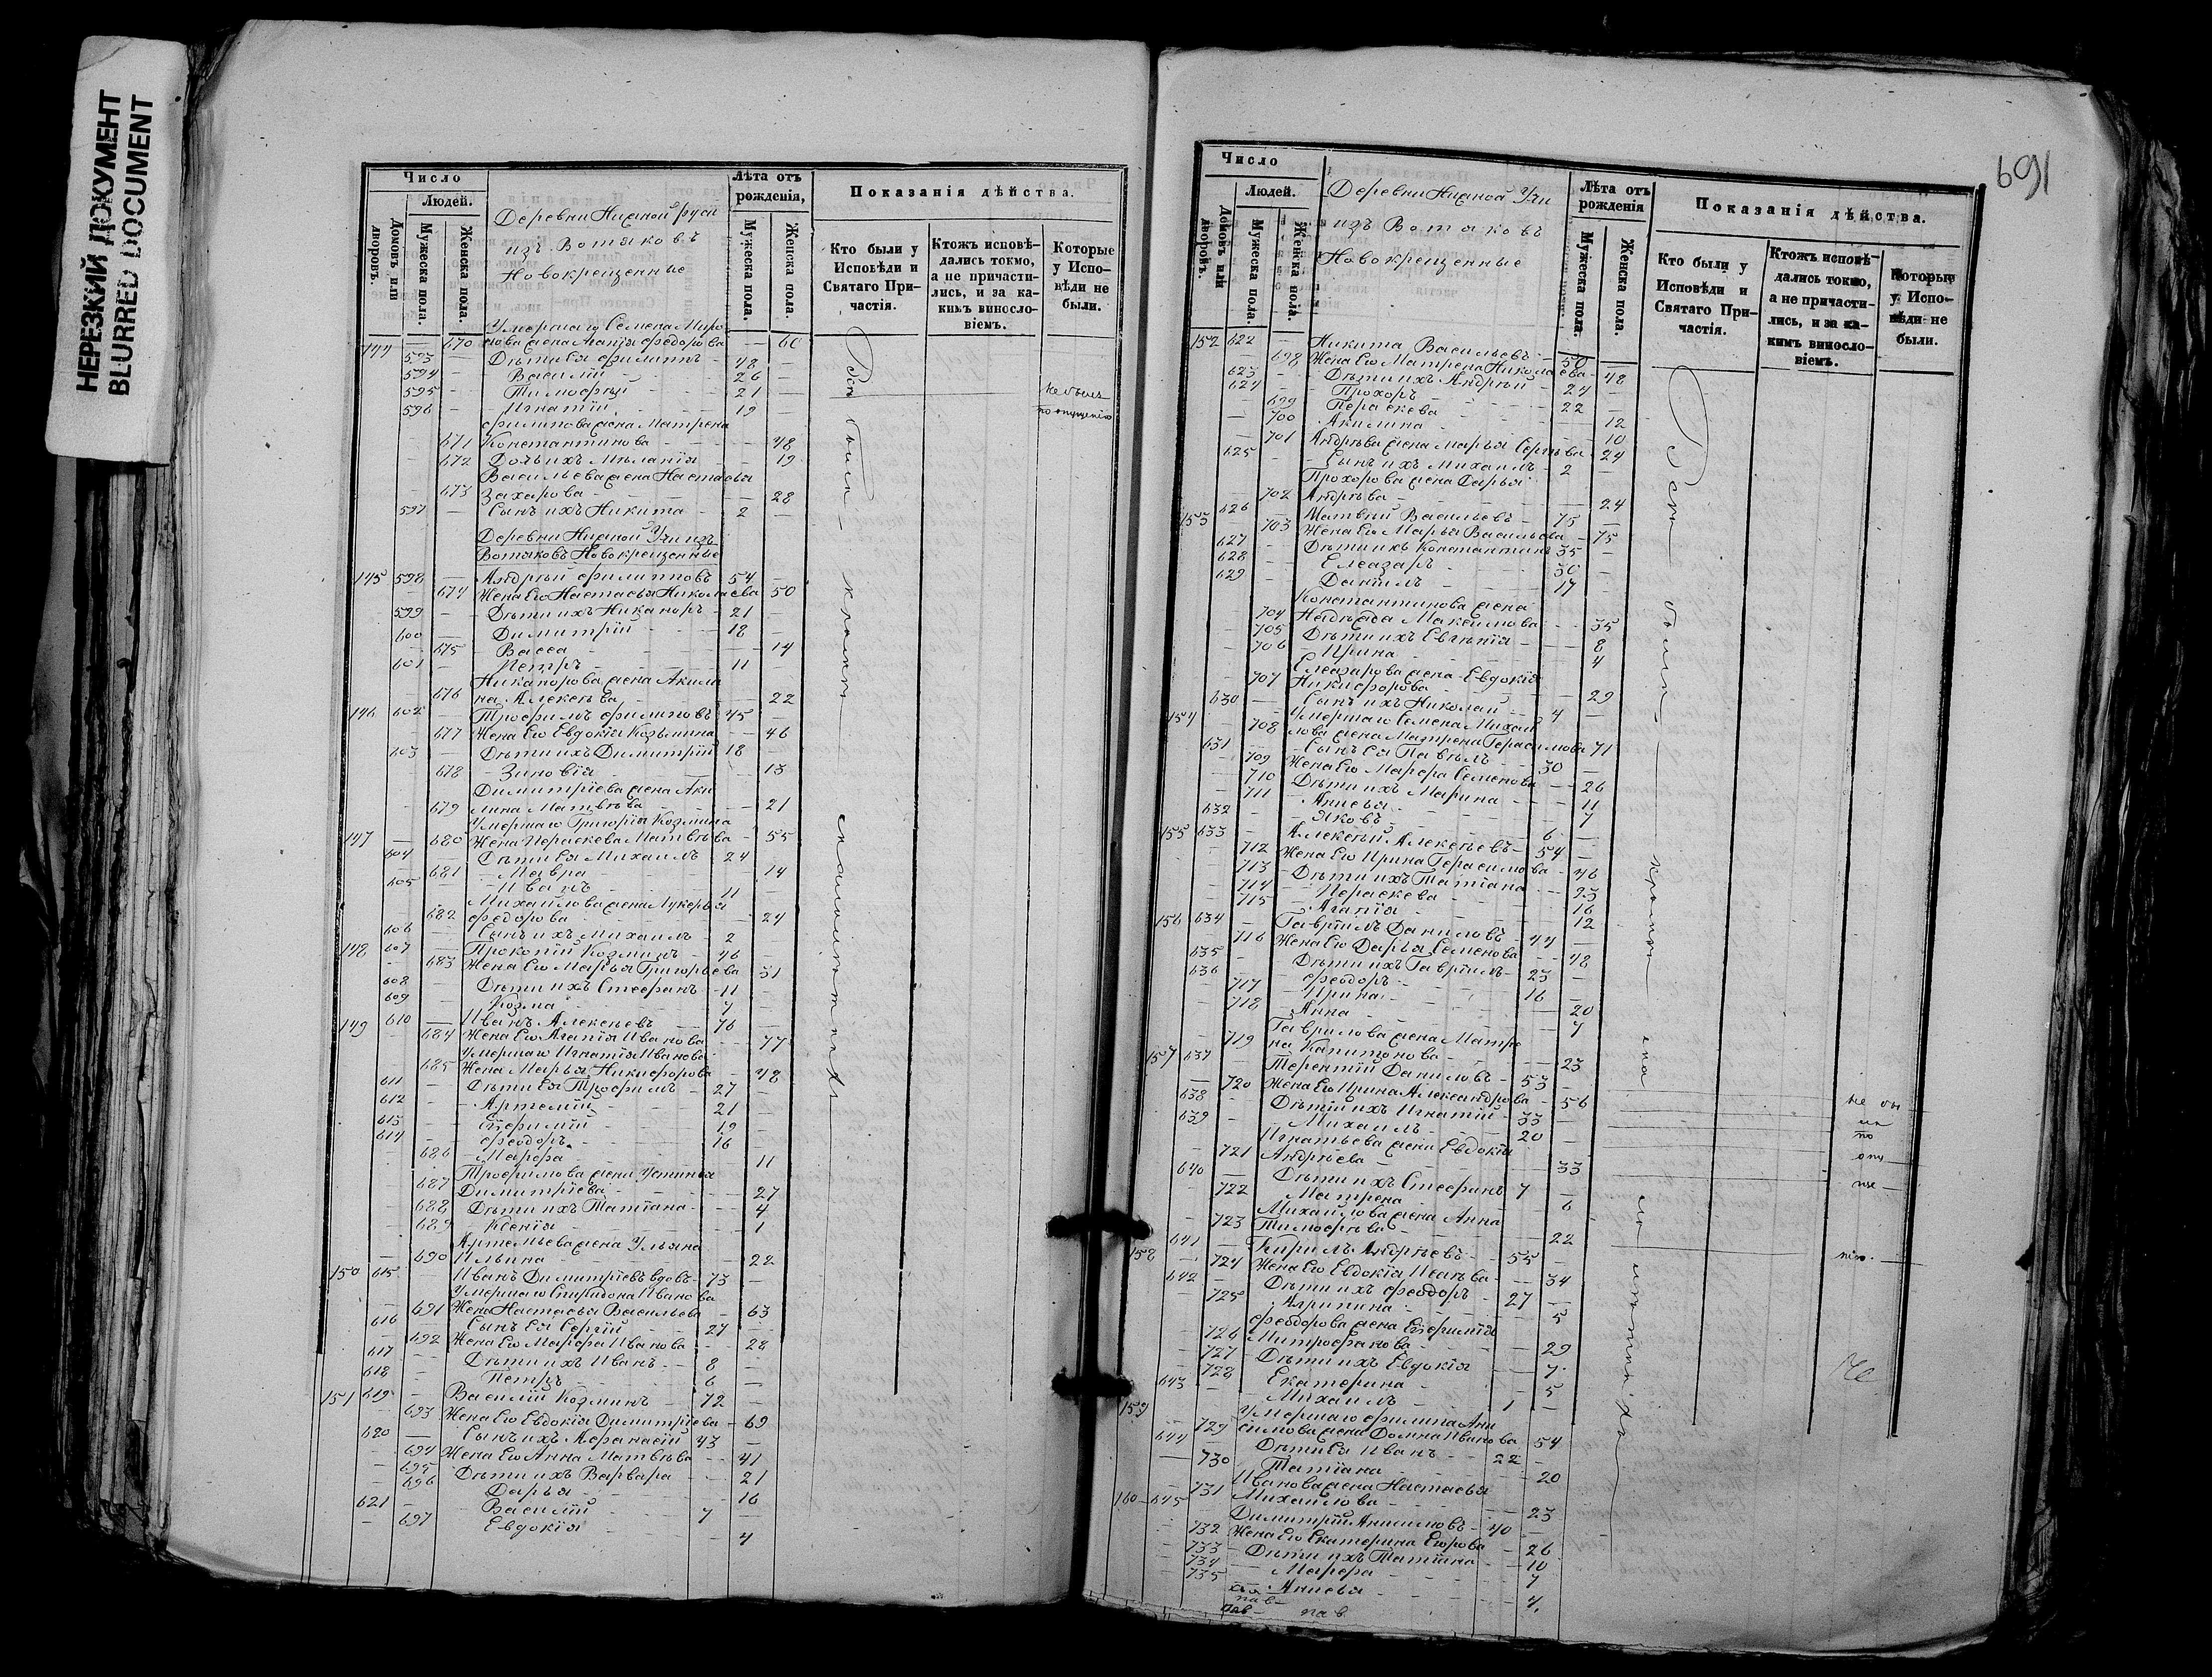 НЕРЕЗКИЙ ДОКУМЕНТ
BLURRED DOCUMENT
Число
Людей.
Домовъ или дворовъ.
Мужеска пола.
Женска пола.
Деревни Нижной
изъ Вотяковъ
Новокрещенные
Лѣта отъ рожденія,
Мужеска пола.
Женска пола.
Показанія дѣйства.
Кто были у Исповѣди и Святаго Причастія.
Ктожъ исповѣдались токмо, а не причастились, и за какимъ винословіемъ.
Которые у Исповѣди не были.
Умершаго Семена Миро
144 — 670 нова жена Федорова — — 60
593 — Дѣти Ея Филиппъ - 48 —
594 — Василій - - 26 —
595 — Тимофей - - 21 — не былъ
596 — Игнатій - - 19 — по опущенію
Филипова жена Матрена
671 Константинова - - - 48
672 Дочь ихъ Меланія - - 19
Васильева жена Настасья
673 Захарова - - - 28
597 — Сынъ ихъ Никита - 2 —
Деревни Нижной Учи изъ
Вотяковъ Новокрещенные
145 598 — Андрей Филипповъ 54 -
674 Жена Его Настасья Николаева 50
599 — Дѣти ихъ Никаноръ - 21 —
600 — Димитрій - - 18 —
675 - Васса - - - 14
601 — Петръ - - 11 —
Никанорова жена Акили
676 на Алексѣева - - - 22
146 602 — Трофимъ Филиповъ 45 —
677 Жена Его Евдокія Козьмина - 46
603 — Дѣти ихъ Димитрій 18 —
678 - Зиновія - - - 13
Димитріева жена Аки
679 лина Матвѣева - - - 21
Умершаго Григорія Козмина
147 — 680 Жена Параскева Матвѣева - 55
604 — Дѣти Ея Михаилъ - 24 —
681 - Мавра - - - 14
605 — Иванъ - - 11 —
Михайлова жена Лукерья
682 Федорова - - - 24
606 — Сынъ ихъ Михаилъ - 2 —
148 607 — Прокопій Козминъ - 46 —
683 Жена Его Марья Григорьева - 31
608 — Дѣти ихъ Стефанъ - 11 —
609 — Козма - 7 —
149 610 — Иванъ Алексѣевъ - 76 —
684 Жена Его Агапія Иванова - 77
Умершаго Игнатія Иванова
685 Жена Марья Никифорова - 48
611 — Дѣти Ея Трофимъ - 27 —
612 — Артемій - - 21 —
613 — Ефимій - - 19 —
614 — Феодоръ - - 16 —
686 - Марфа - - - 11
Трофимова жена Устинья
687 Димитріева - - - 27
688 Дѣти ихъ Татіана - - 4
689 - Ксенія - - - 1
Артемьева жена Ульяна
690 Ильина - - - 22
150 615 — Иванъ Димитріевъ вдовъ - 73 —
Умершаго Спиридона Иванова
691 Жена Настасья Васильева - 63
616 — Сынъ Ея Сергій - 27 —
692 Жена Его Марфа Иванова - 28
617 — Дѣти ихъ Иванъ - 8 —
618 — Петръ - 6 —
151 619 — Василій Козминъ - 72 —
693 Жена Его Евдокія Димитріева - 69
620 — Сынъ ихъ Афанасій 43 —
694 Жена Его Анна Матвѣева - 41
695 Дѣти ихъ Варвара - - 21
696 Дарья - - - 16
621 — Василій - - 7 —
697 Евдокія - - - 4
691
Число
Людей.
Домовъ или дворовъ.
Мужеска пола.
Женска пола.
Деревни Нижной Учи
изъ Вотяковъ
Новокрещенные
Лѣта отъ рожденія
Мужеска пола.
Женска пола.
Показанія дѣйства.
Кто были у Исповѣди и Святаго Причастія.
Ктожъ исповѣдались токмо, а не причастились, и за какимъ винословіемъ.
Которые у Исповѣди не были.
152 622 — Никита Васильевъ - 50 —
698 Жена Его Матрена Николаева - 48
623 — Дѣти ихъ Андрей - 24 —
624 — Прохоръ - 22 —
699 Параскева - - 12
700 Акилина - - 10
701 Андрѣева жена Марья Сергѣева 24
625 — Сынъ ихъ Михаилъ - 2 —
Прохорова жена Дарья
702 Андрѣева - - - 24
153 626 — Матвей Васильевъ - 75 —
703 Жена Его Марья Васильева - 75
627 — Дѣти ихъ Константинъ 35 —
628 — Елеазаръ - 30 —
629 — Даніилъ - 17 —
Константинова жена
704 Надежда Максимова - - 35
705 Дѣти ихъ Евгенія - - 8
706 - Ирина - - - 4
Елеазарова жена Евдокія
707 Никифорова - - - 29
630 — Сынъ ихъ Николай - 4 —
154 Умершаго Семена Михай
708 лова жена Матрена Герасимова 71
631 — Сынъ Ея Павелъ - 30 —
709 Жена Его Марфа Семенова - 26
710 Дѣти ихъ Марина - - 11
711 - Анисья - - - 7
632 — Яковъ - - 6 —
155 633 — Алексѣй Алексѣевъ - 54 —
712 Жена Его Ирина Герасимова - 46
713 Дѣти ихъ Татіана - - 23
714 - Параскева - - 16
715 - Агапія - - 12
156 634 — Гавріилъ Даниловъ - 44 —
716 Жена Его Дарья Семенова - 48
635 — Дѣти ихъ Гавріилъ - 23 —
636 — Феодоръ - 16 —
717 - Ирина - - - 20
718 - Анна - - - 7
Гаврилова жена Матре
719 на Капитонова - - - 23
157 637 — Терентій Даниловъ - 53 —
720 Жена Его Ирина Александрова - 56 не бы
638 — Дѣти ихъ Игнатій - 33 — ли
639 — Михаилъ - 20 — по
Игнатьева жена Евдокія
721 Андрѣева - - - 33 опу
640 — Дѣти ихъ Стефанъ 7 — ще
722 Матрена - - 6
Михайлова жена Анна
723 Тимофѣева - - - 22
158 641 — Кирилъ Андрѣевъ - 55 — нію.
724 Жена Его Евдокія Исаева - 34
642 — Дѣти ихъ Феодоръ - 27 —
725 Агрипина - - - 5
Феодорова жена Ефимія
726 Митрофанова - - - 29
727 Дѣти ихъ Евдокія - - 7
728 Екатерина - - 5
643 — Михаилъ - 1 —
159 Умершаго Филипа Ани
729 симова жена Домна Иванова 54
644 — Дѣти Ея Иванъ - 22 —
730 Татіана - - - 20
Иванова жена Настасья
731 Михайлова - - - 23
160 645 — Димитрій Анисимовъ - 40 —
732 Жена Его Екатерина Егорова - 26
733 Дѣти ихъ Татіана - 10
734 - Марфа - - - 7
735 - Анисья - - - 4